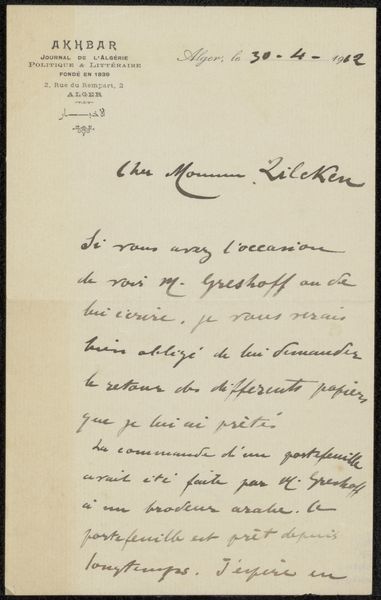 AKHBAR
JOURNAL DE L'ALGÉRIE
POLITIQUE & LITTÉRAIRE
FONDÉ EN 1839
2, Rue du Rempart, 2
ALGER
الاخبار
Alger, le 30-4-1912
Cher Monsieur Zilcken
Si vous avez l'occasion
de voir M. Greshoff ou de
lui écrire, je vous serais
bien obligé de lui demander
le retour des différents papiers
que je lui ai prêtés
La commande d'un portefeuille
avait été faite par M. Greshoff
à un brodeur arabe. Le
portefeuille est prêt depuis
longtemps. J'espère en